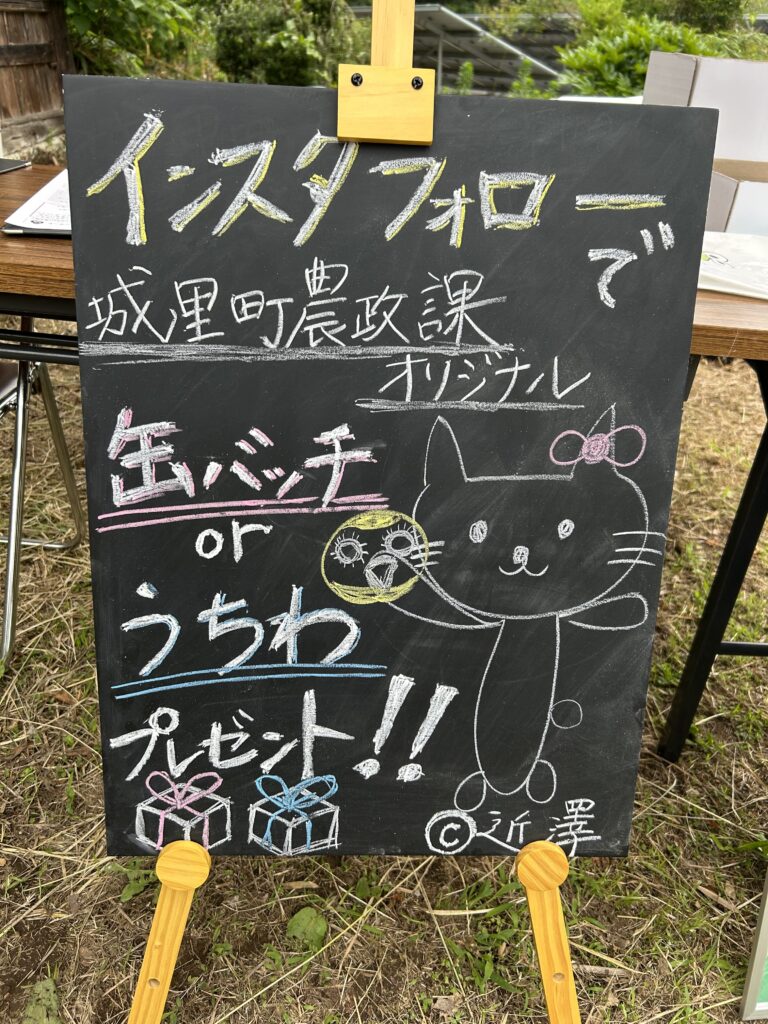 インスタフォロー
で
城里町農政課
オリジナル
缶バッチ
or
うちわ
プレゼント!!
©近澤